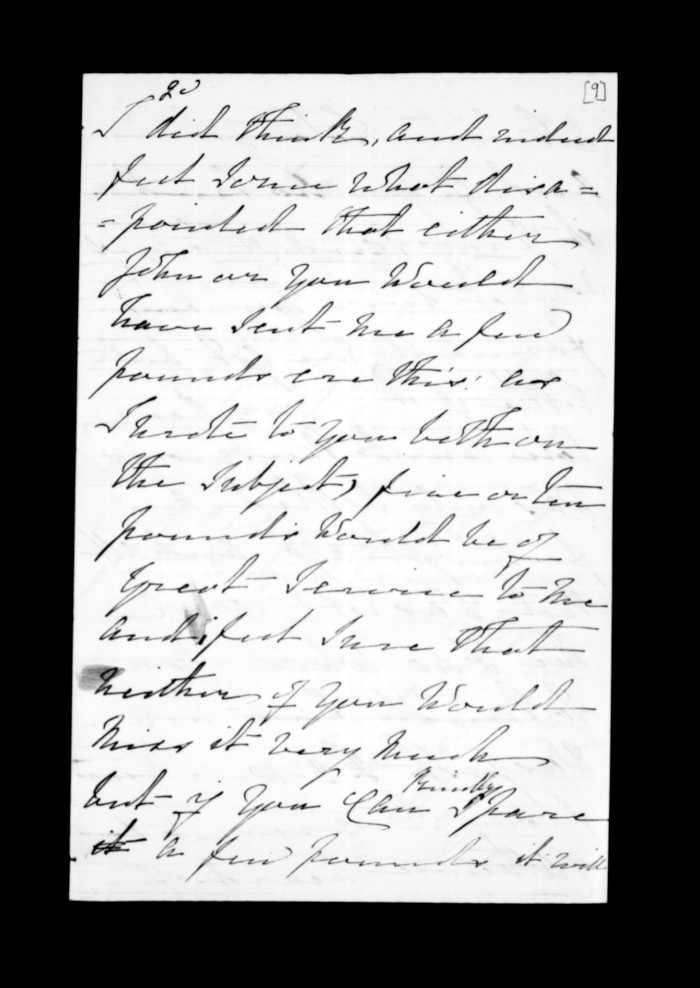 2d
[9]
I did think, and indeed
feel some what disa=
=pointed that either
John or you would
have sent me a few
pounds ere this: as
I wrote to you both on
the subject, five or ten
pounds would be of
great service to me
and i feel sure that
neither of you would
miss it very much
but if you can kindly spare
it a few pounds it will